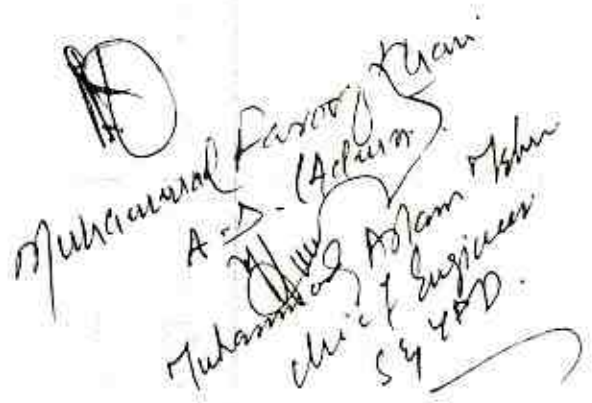 Muhammad Farooq Khan
A.D. (Admn)
Muhammad Aslam
Chief Engineer